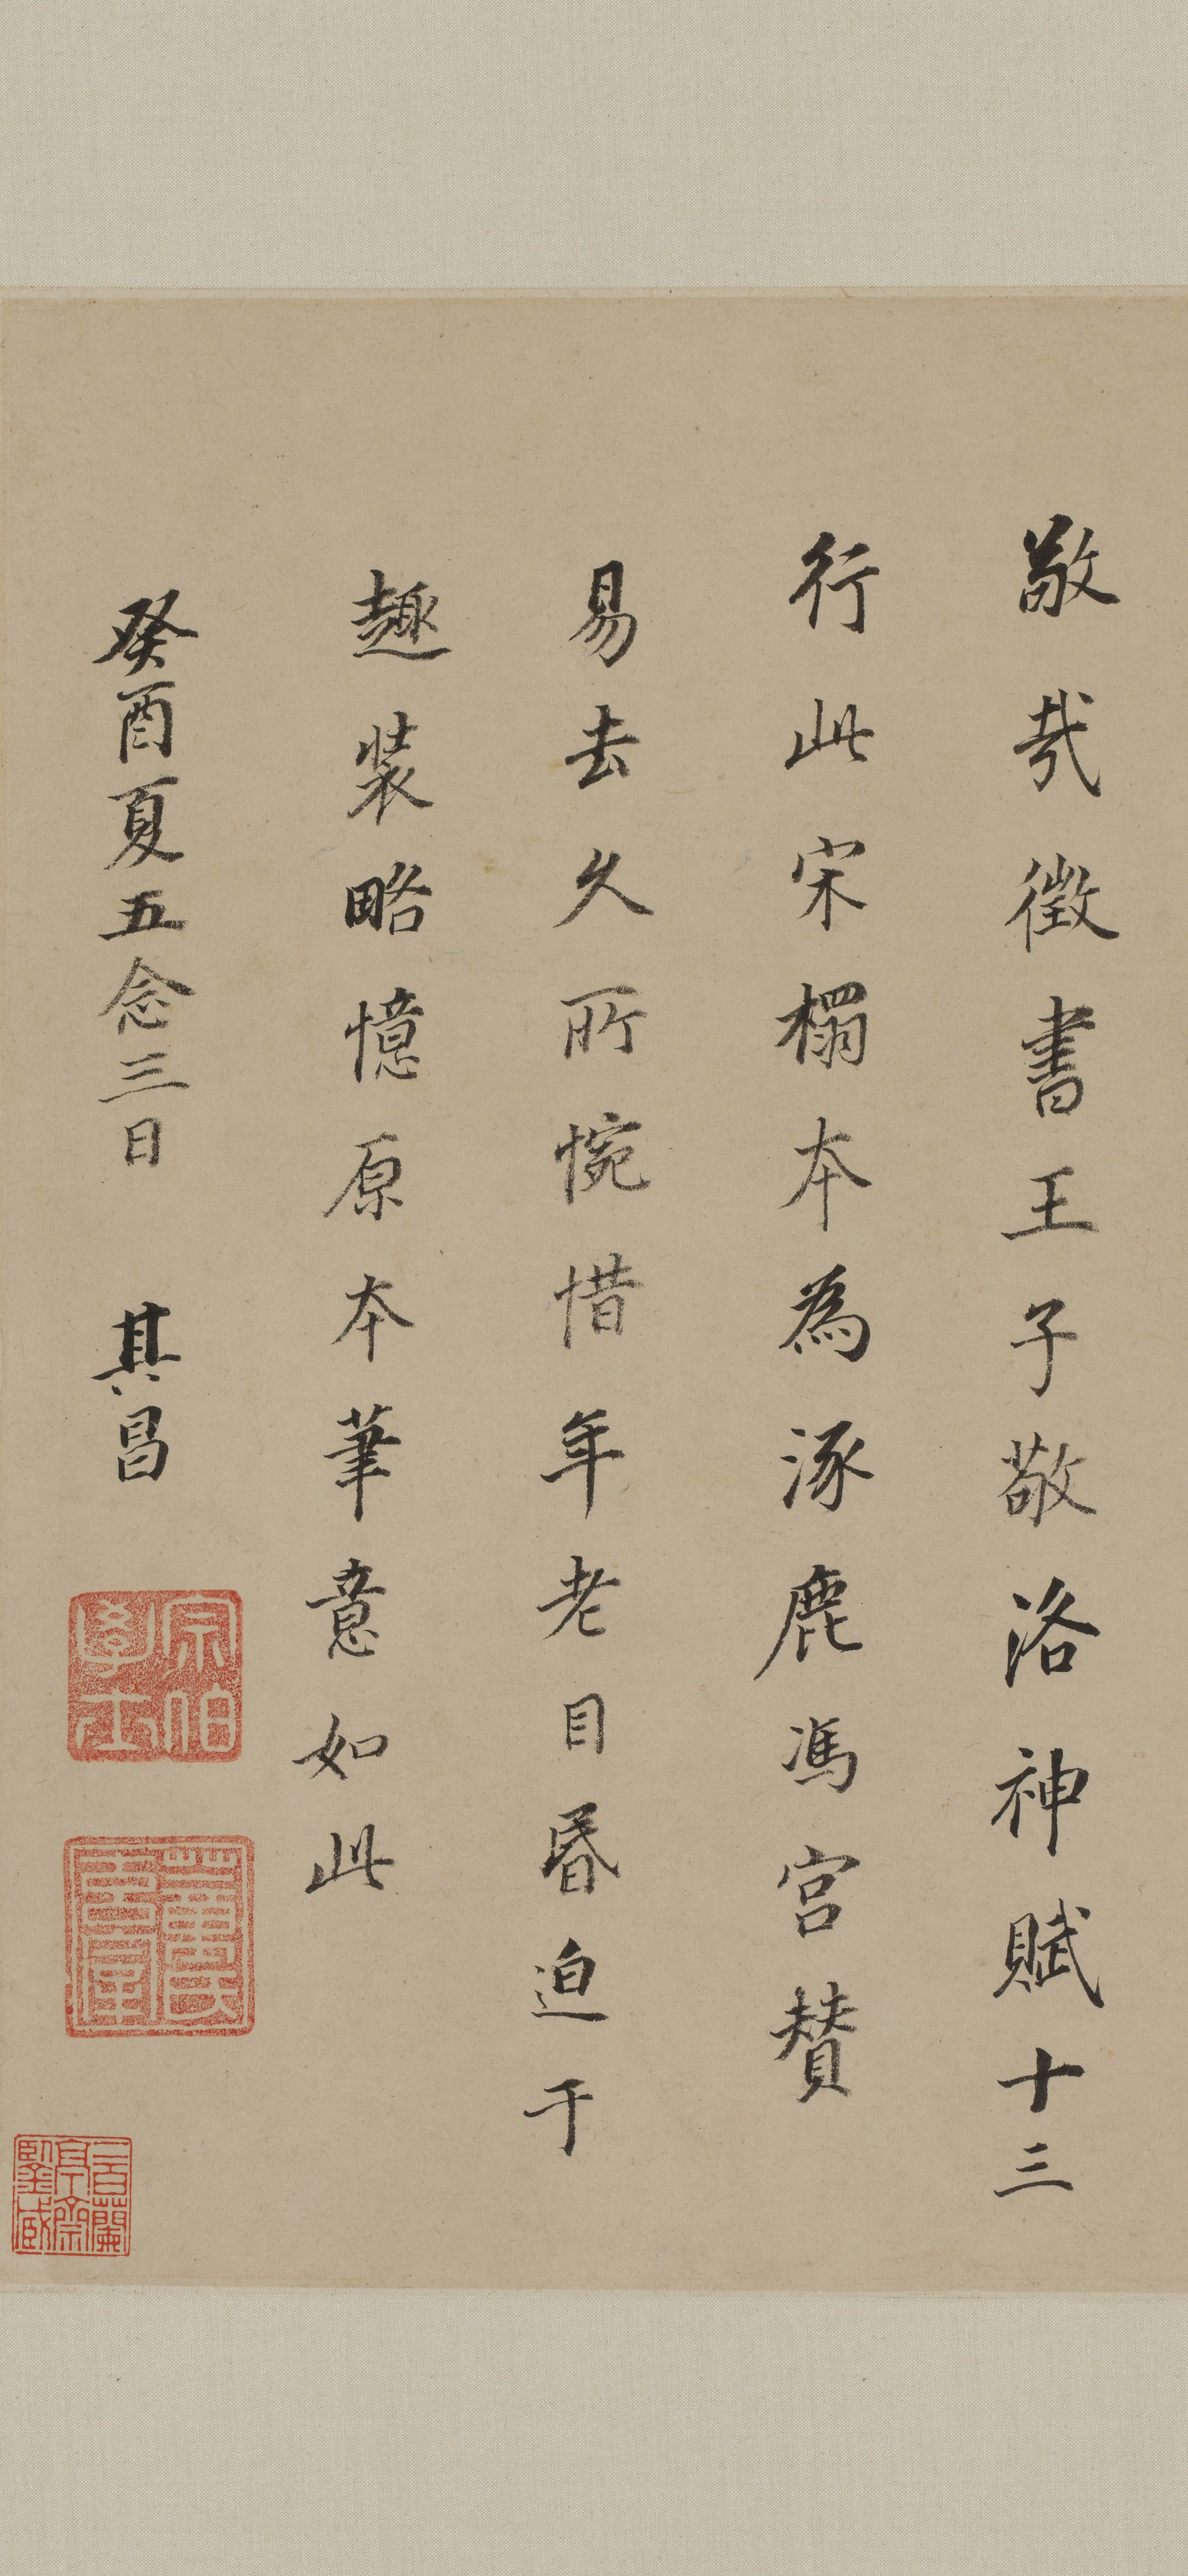 敬哉徵書王子敬洛神賦十三
行此宋榻本為涿鹿馮宮贊
易去久所惋惜年老目昏迫于
趣裝略憶原本筆意如此
癸酉夏五念三日 其昌
宗伯學士
董氏玄宰
三百蘭亭齋鑒藏